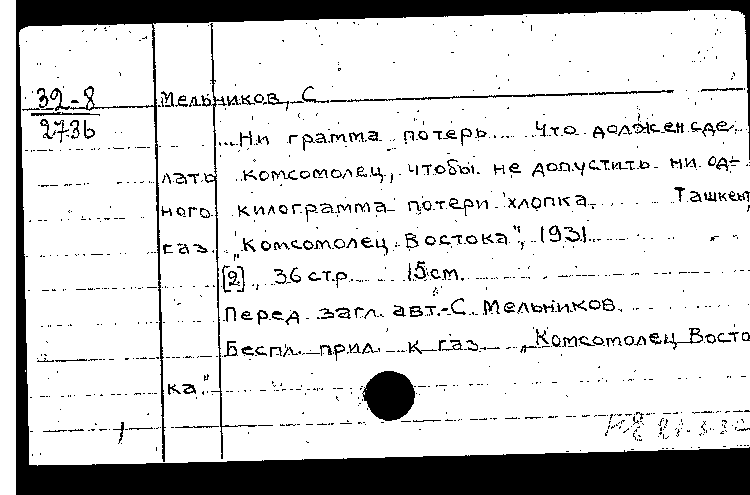 32-8
2736
Мельников, С
...Ни грамма потерь... Что должен сде-
лать комсомолец, чтобы не допустить ни од-
ного килограмма потери хлопка. Ташкент,
газ. „Комсомолец Востока", 1931.
[2], 36 стр. 15см.
Перед загл. авт.-С. Мельников.
Беспл. прил. к газ. „Комсомолец Восто
ка."